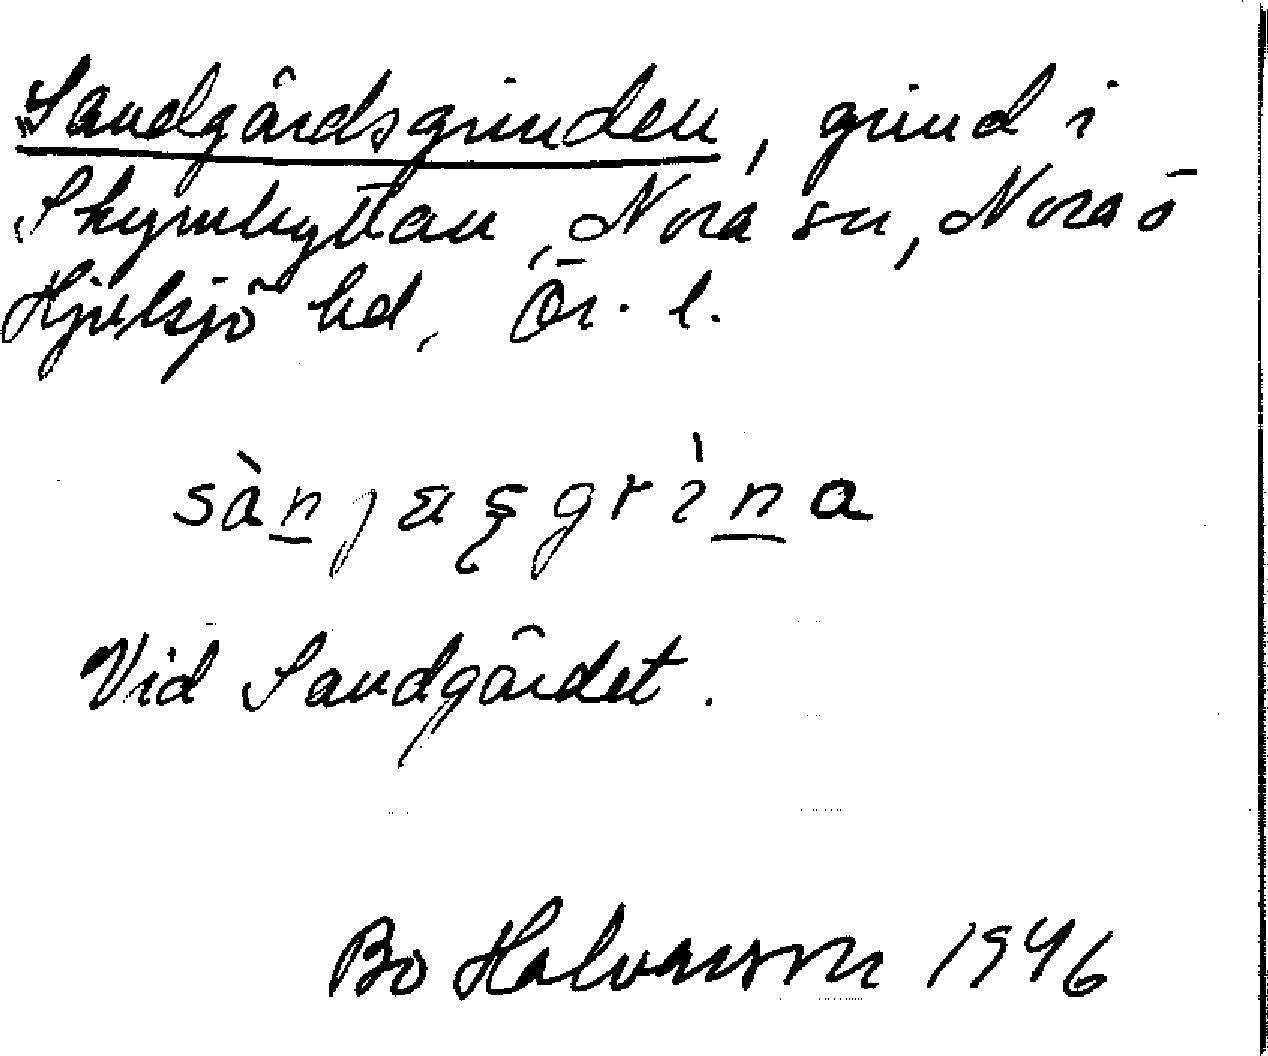 Sandgårdsgrinden, grind i
Skrymhyttan, Nora sn, Nora ö
Hjulsjö hd, Ör. l.
sàn̲jæșgrìn̲a
Vid Sandgärdet.
Bo Halvarson 1946